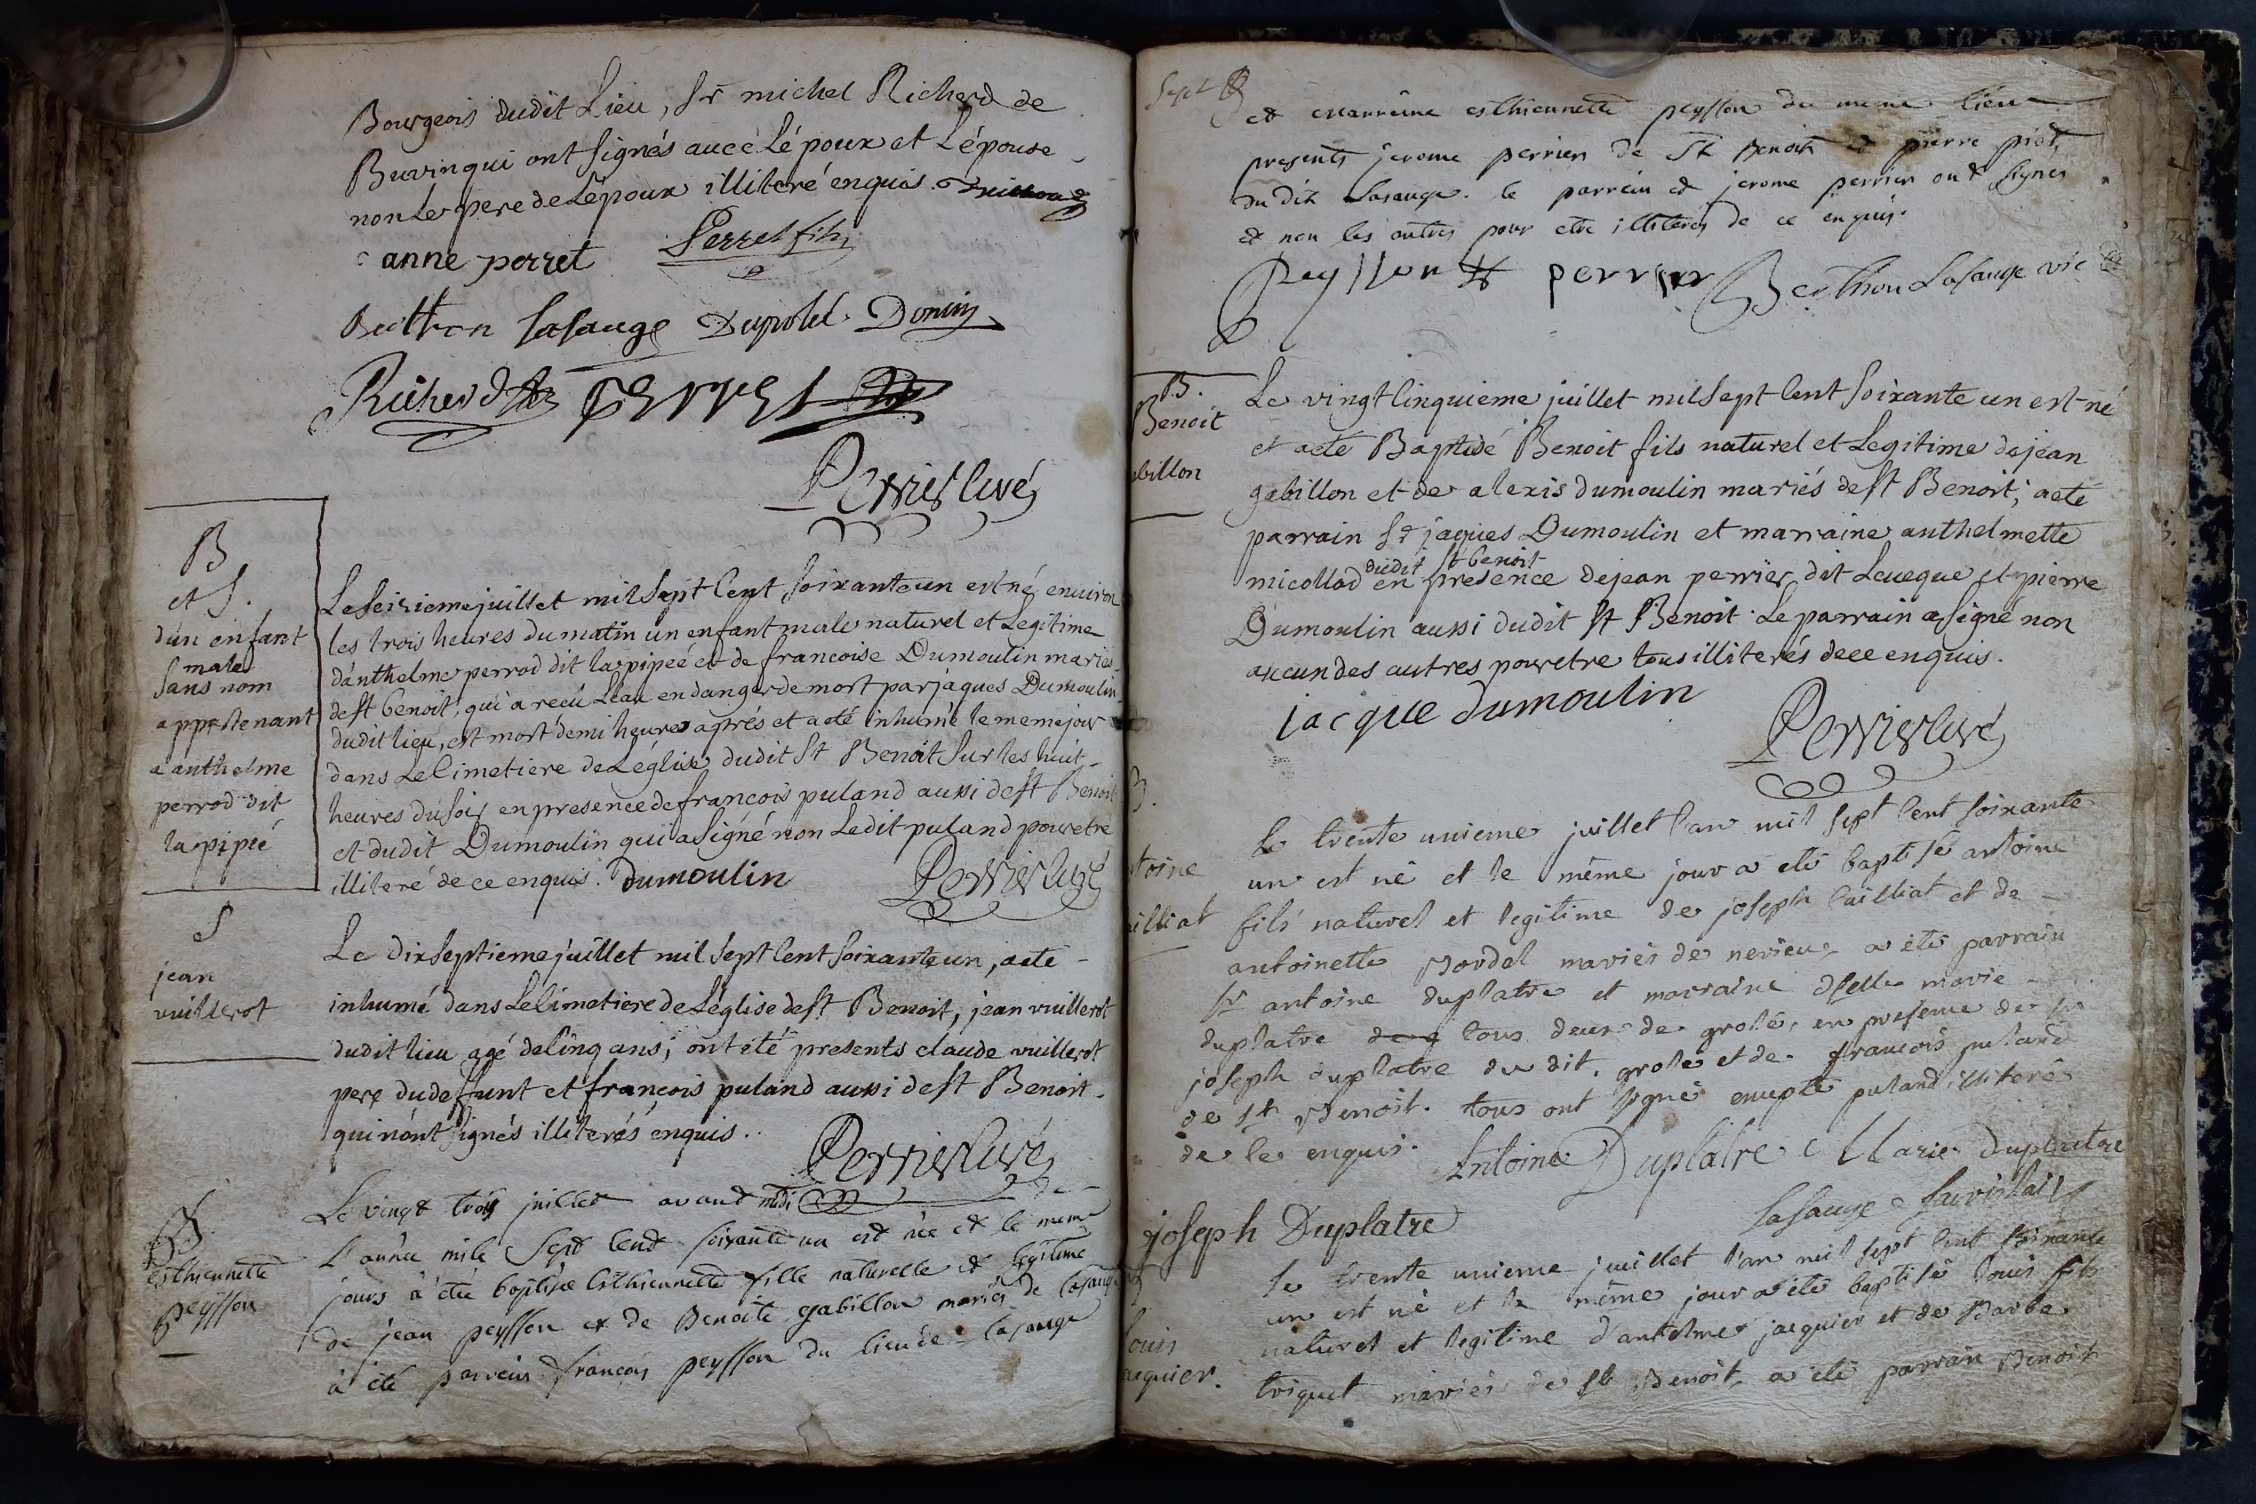 Bourgeois dudit Lieu, Sr michel Richerd de
Buvin qui ont signés avec Lépoux et Lépouse
non Le pere de Lépoux illiteré enquis.
anne perret Perret fils
Berthon Lasauge Dupolet Donin
Richerd perret
Perrier Curé
B
et S.
d'un enfant
male
sans nom
appartenant
a anthelme
perrod dit
la pipée
Le seizieme juillet mil sept Cent soixante un est né environ
les trois heures du matin un enfant male naturel et Legitime
d'anthelme perrod dit la pipeé et de francoise Dumoulin mariés
de st benoit, qui à recû L'eau en danger de mort par jaques Dumoulin
dudit lieu, est mort demi heure aprés et a eté inhumé le meme jour
dans Le Cimetiere de L'église dudit St Benoit sur les huit
heures du soir en presence de francois puland aussi de st Benoit
et dudit Dumoulin qui a signé non Ledit puland pour etre
illiteré de ce enquis. dumoulin Perrier Curé
S
jean
vuillerot
Le dix septieme juillet mil sept Cent soixante un, a eté
inhumé dans Le Cimetiere de L'église de st Benoit, jean vuillerot
dudit lieu agé de Cinq ans, ont été presents claude vuillerot
pere du deffunt et francois puland aussi de st Benoit
qui n'ont signés illiterés enquis.
Perrier Curé
B
esthiennette
peysson
Le vingt trois juillet avant midi de
L'année mile sept Cent soixante un est née et le meme
jours à été baptisée Esthiennette fille naturelle et legitime
de jean peysson et de Benoite gabillon mariés de lasauge
à été parrein françois peysson du lieu de lasauge
Sept
et marreine esthiennette peysson du meme lieu
presents jerome perrier de St Benoit et pierre piot
du dit Lasauge. le parrein et jerome perrier ont signes
et non les autres pour etre illiterés de ce enquis.
Peysson perrier Berthon Lasauge vic
B.
Benoit
abillon
Le vingt Cinquieme juillet mil sept Cent soixante un est né
et a eté Baptisé Benoit fils naturel et Legitime de jean
gabillon et de alexis dumoulin mariés de st Benoit; a eté
parrain Sr jaques Dumoulin et marraine anthelmette
dudit St benoit
micollod en presence de jean perrier dit Leveque et pierre
Dumoulin aussi dudit St Benoit. Le parrain a signé non
aucun des autres pour etre tous illiterés de ce enquis.
jacque dumoulin
Perrier Curé
B.
toine
illiat
Le trente unieme juillet l'an mil sept Cent soixante
un est né et le même jour a été baptisé antoine
fils naturel et legitime de joseph Cailliat et de
antoinette Mordel mariés de nerieu, a été parrain
Sr antoine duplatre et marraine dselle marie
duplatre tous deux de grolé, en presence de Sr
joseph duplatre du dit. grolé et de francois puland
de St Benoit. tous ont signé excepté puland illiteré
de Ce enquis. Antoine Duplatre Marie Duplatre
joseph Duplatre Lasauge
louis
acquier.
Le trente unieme juillet l'an mil sept Cent soixante
un est né et le même jour a été baptisé louis fils
naturel et legitime d'antelme jacquier et de Barbe
triquet mariés de St Benoit, a été parrain Benoit